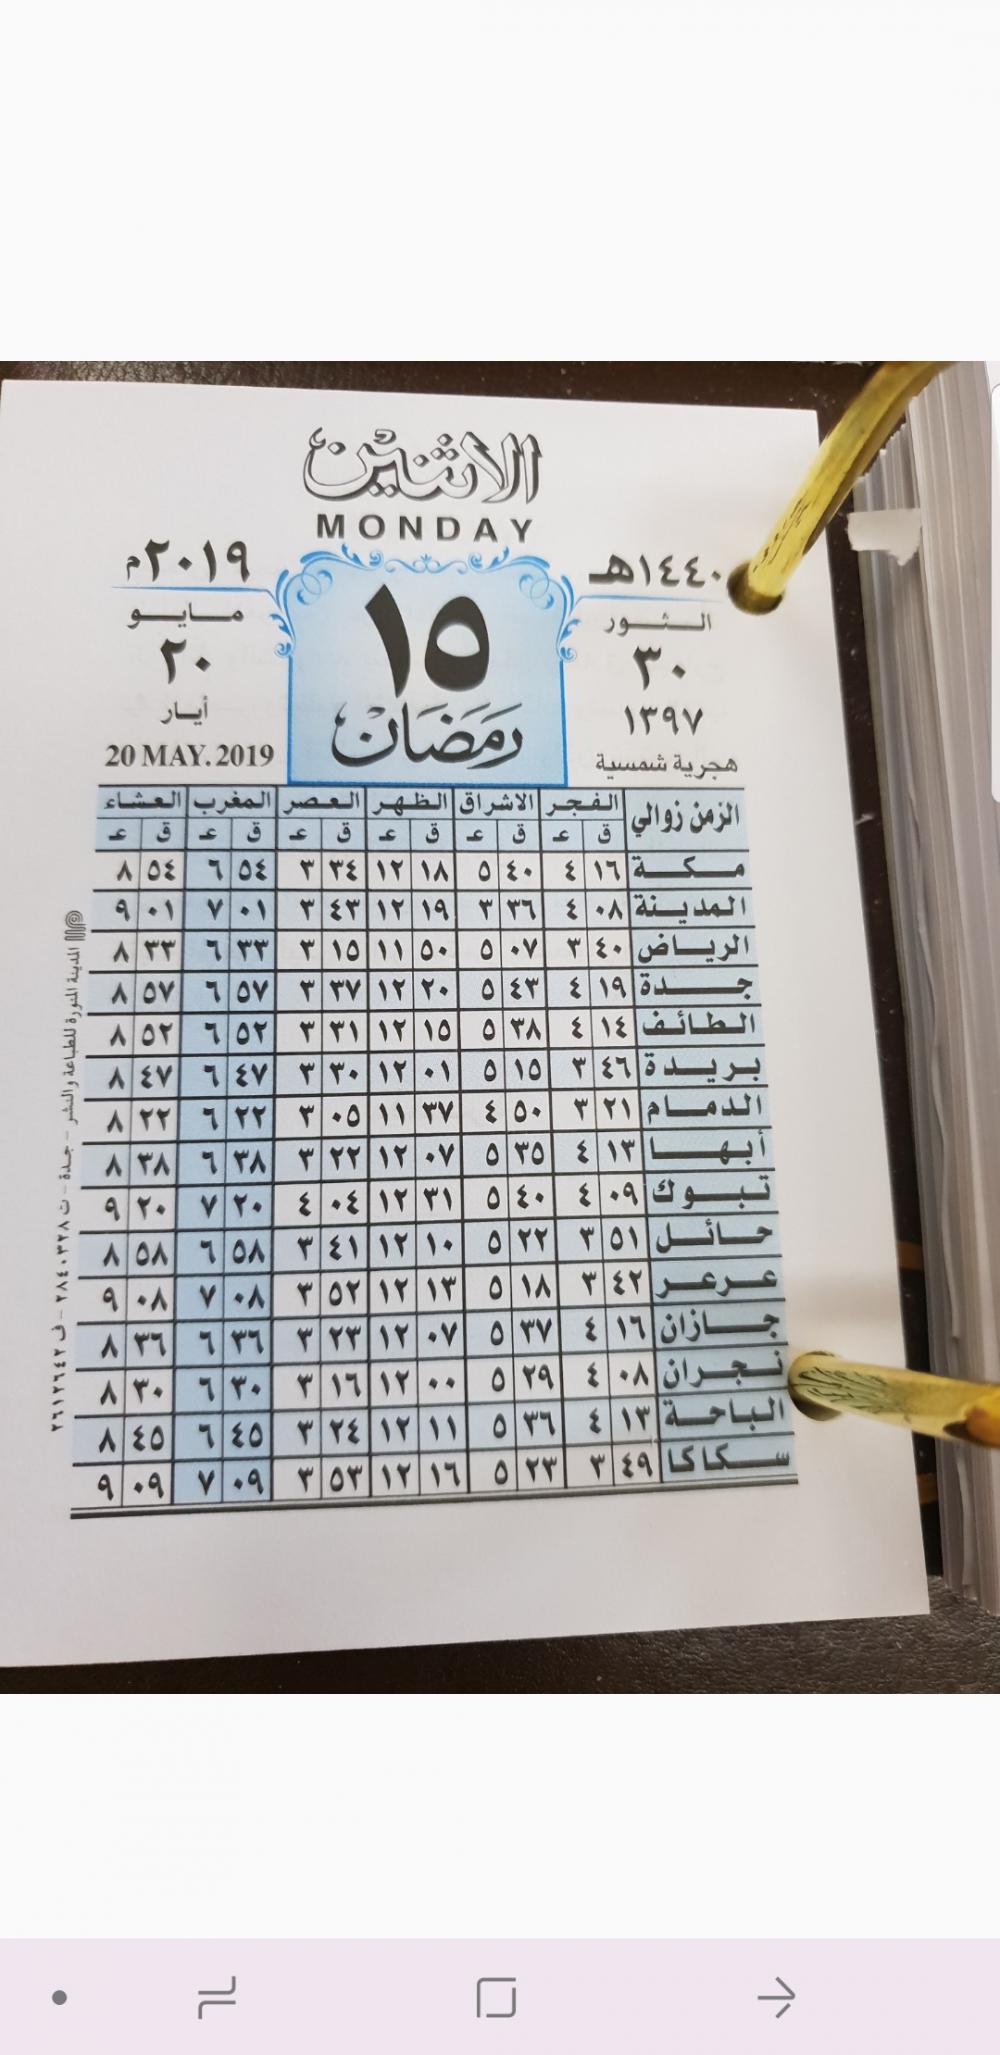 الاثنين
MONDAY
١٤٤٠هـ
٢٠١٩م
الثور
١٥
مايو
٣٠
٢٠
١٣٩٧
رمضان
أيار
هجرية شمسية
20 MAY. 2019
الزمن زوالي الفجر الاشراق الظهر العصر المغرب العشاء
ق عـ ق عـ ق عـ ق عـ ق عـ ق عـ
مكة ١٦ ٤ ٤٠ ٥ ١٨ ١٢ ٣٤ ٣ ٥٤ ٦ ٥٤ ٨
المدينة ٠٨ ٤ ٣٦ ٣ ١٩ ١٢ ٤٣ ٣ ٠١ ٧ ٠١ ٩
الرياض ٤٠ ٣ ٠٧ ٥ ٥٠ ١١ ١٥ ٣ ٣٣ ٦ ٣٣ ٨
جدة ١٩ ٤ ٤٣ ٥ ٢٠ ١٢ ٣٧ ٣ ٥٧ ٦ ٥٧ ٨
الطائف ١٤ ٤ ٣٨ ٥ ١٥ ١٢ ٣١ ٣ ٥٢ ٦ ٥٢ ٨
بريدة ٤٦ ٣ ١٥ ٥ ٠١ ١٢ ٣٠ ٣ ٤٧ ٦ ٤٧ ٨
الدمام ٢١ ٣ ٥٠ ٤ ٣٧ ١١ ٠٥ ٣ ٢٢ ٦ ٢٢ ٨
أبها ١٣ ٤ ٣٥ ٥ ٠٧ ١٢ ٢٢ ٣ ٣٨ ٦ ٣٨ ٨
تبوك ٠٩ ٤ ٤٠ ٥ ٣١ ١٢ ٠٤ ٤ ٢٠ ٧ ٢٠ ٩
حائل ٥١ ٣ ٢٢ ٥ ١٠ ١٢ ٤١ ٣ ٥٨ ٦ ٥٨ ٨
عرعر ٤٢ ٣ ١٨ ٥ ١٣ ١٢ ٥٢ ٣ ٠٨ ٧ ٠٨ ٩
جازان ١٦ ٤ ٣٧ ٥ ٠٧ ١٢ ٢٣ ٣ ٣٦ ٦ ٣٦ ٨
نجران ٠٨ ٤ ٢٩ ٥ ٠٠ ١٢ ١٦ ٣ ٣٠ ٦ ٣٠ ٨
الباحة ١٣ ٤ ٣٦ ٥ ١١ ١٢ ٢٤ ٣ ٤٥ ٦ ٤٥ ٨
سكاكا ٤٩ ٣ ٢٣ ٥ ١٦ ١٢ ٥٣ ٣ ٠٩ ٧ ٠٩ ٩
المدينة المنورة للطباعة والنشر - جدة - ت ٢٨٤٠٣٢٨ - ف ٢٦١٢٦٤٢